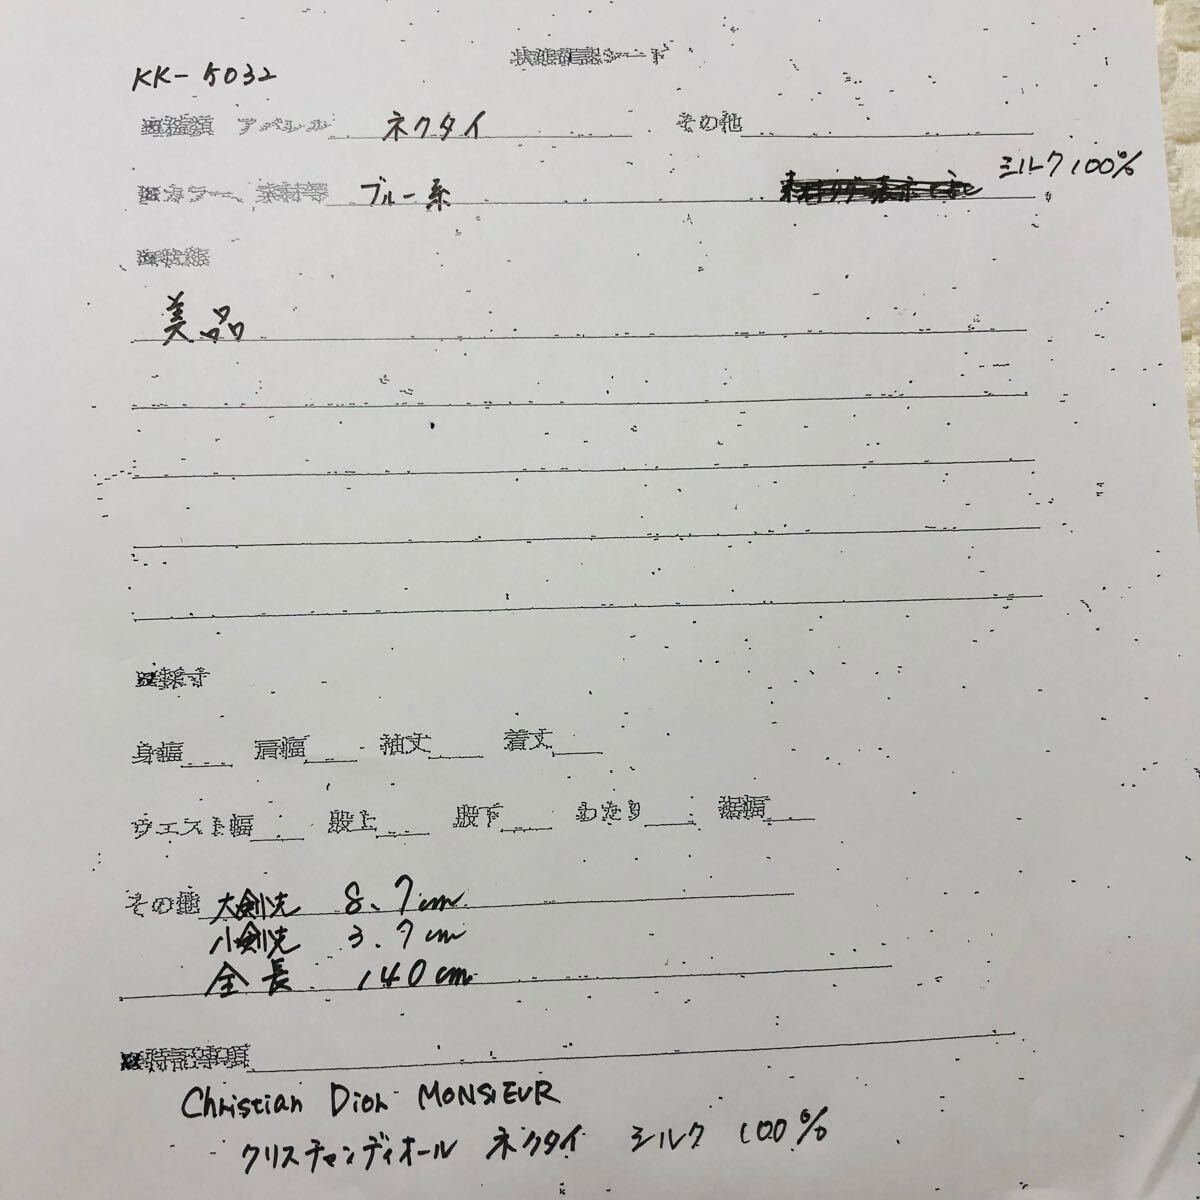 状態確認シート
KK-5032
種類 アパレル ネクタイ その他
カラー、素材等 ブルー系 シルク100%
状態
美品
採寸
身幅 肩幅 袖丈 着丈
ウエスト幅 股上 股下 わたり 裾幅
その他 大剣先 8.7cm
小剣先 3.7cm
全長 140cm
特記事項
Christian Dior MONSIEUR
クリスチャンディオール ネクタイ シルク 100%